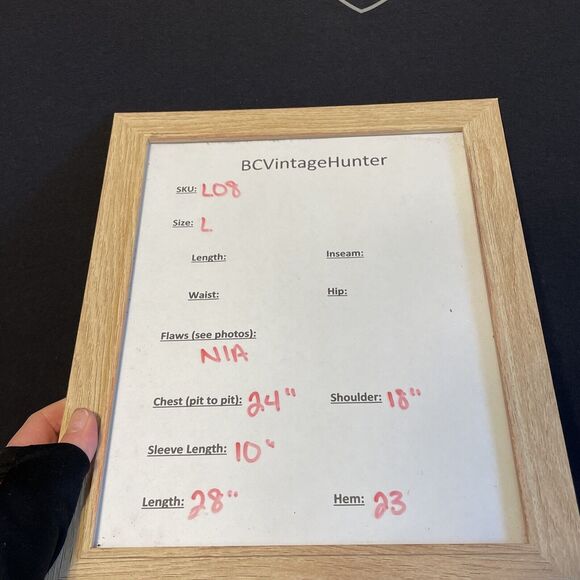 BCVintageHunter
SKU: L08
Size: L.
Length: Inseam:
Waist: Hip:
Flaws (see photos):
N/A
Chest (pit to pit): 24" Shoulder: 18"
Sleeve Length: 10"
Length: 28" Hem: 23